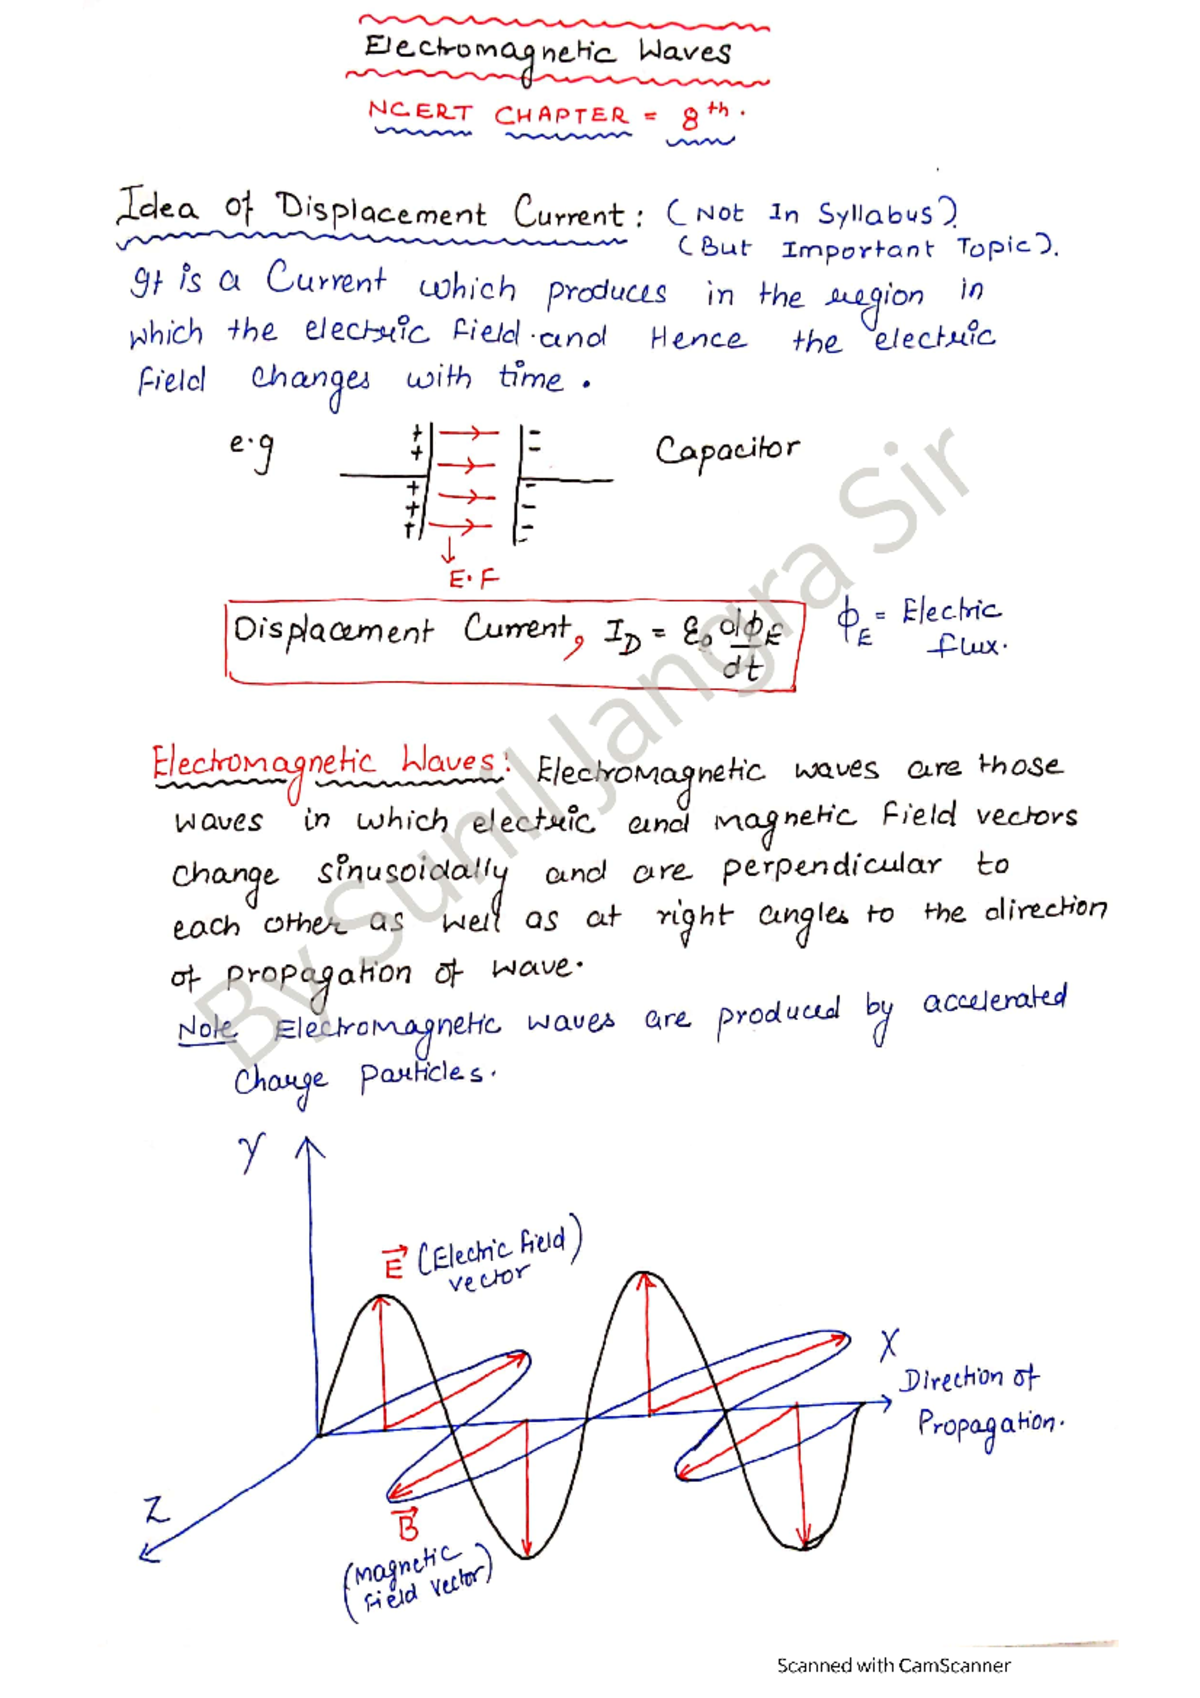 Electromagnetic Waves
NCERT CHAPTER = 8th.
Idea of Displacement Current: (Not In Syllabus).
(But Important Topic).
It is a Current which produces in the region in
which the electric field.and Hence the electric
field changes with time.
e.g
Capacitor
+ + + + +
- - - - -
E.F
Displacement Current, I_D = ε₀ dϕ_E/dt
ϕ_E = Electric
flux.
Electromagnetic Waves: Electromagnetic waves are those
waves in which electric and magnetic field vectors
change sinusoidally and are perpendicular to
each other as well as at right angles to the direction
of propagation of wave.
Note Electromagnetic waves are produced by accelerated
Charge Particles.
Y
E⃗ (Electric field)
vector
X
Direction of
Propagation.
Z
B⃗
(Magnetic
field vector)
By Sunil Jangra Sir
Scanned with CamScanner